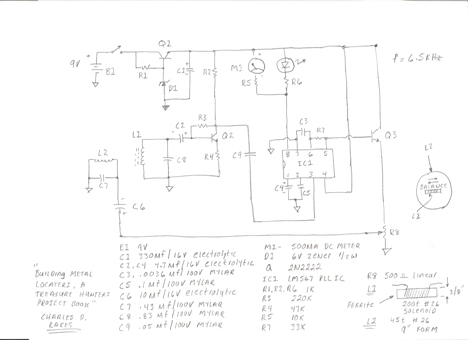 Q2
f = 6.5KHz
9V
B1
R1
D1
C1
R2
M1
R5
R6
R3
C2
L1
Q2
C8
R4
C9
C3
R7
Q3
8 7 6 5
IC1
1 2 3 4
C4
C5
L2
C7
C6
L2
BALANCE
L1
R8
B1 9V
C1 330Mf/16V electrolytic
C2, C4 4.7Mf/16V electrolytic
C3, .0036 Mf/100V MYLAR
C5 .1 Mf/100V MYLAR
C6 10Mf/16V electrolytic
C7 .43 Mf/100V MYLAR
C8 .83 Mf/100V MYLAR
C9 .05 Mf/100V MYLAR
M1- 500MA DC METER
D1 6V ZENER 1/2W
Q 2N2222
IC1 LM567 PLL IC
R1, R2, R6 1K
R3 220K
R4 47K
R5 10K
R7 33K
R8 500Ω linear
L1
FERRITE
200T #26
SOLENOID
3/8"
L2
45T #26
9" FORM
"BUILDING METAL
LOCATERS, A
TREASURE HUNTERS
PROJECT BOOK"
CHARLES D.
RAKES